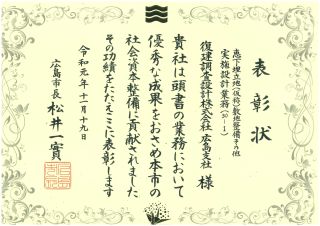 表彰状
恵下埋立地(仮称)敷地整備その他
実施設計業務(30-1)
復建調査設計株式会社 広島支社 様
貴社は頭書の業務において
優秀な成果をおさめ本市の
社会資本整備に貢献されました
その功績をたたえここに表彰します
令和元年十一月十九日
広島市長 松井一實